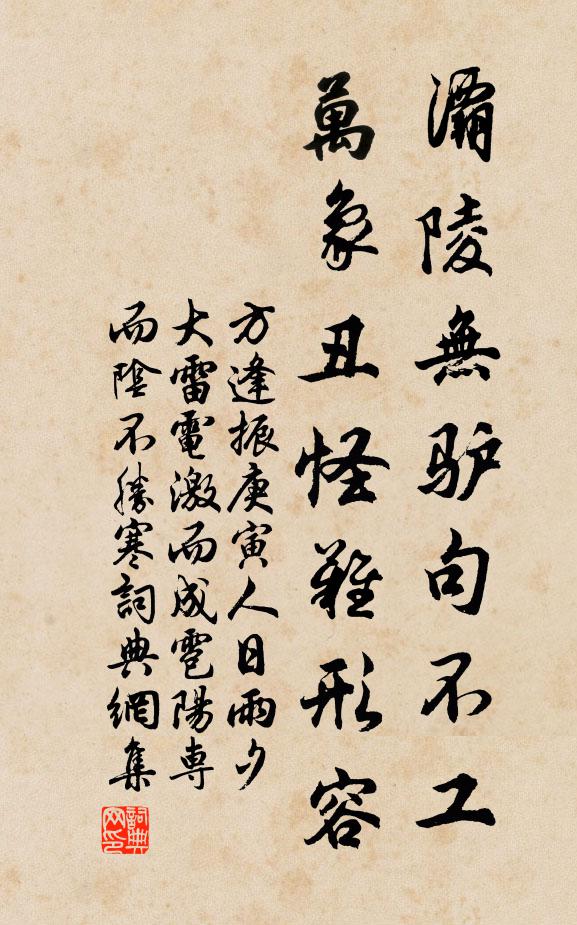 灞陵無驴句不工
萬象丑怪難形容
方逢振庚寅人日雨夕
大雷電激而成雹陽専
而陰不勝寒詞典網集
詞典网印